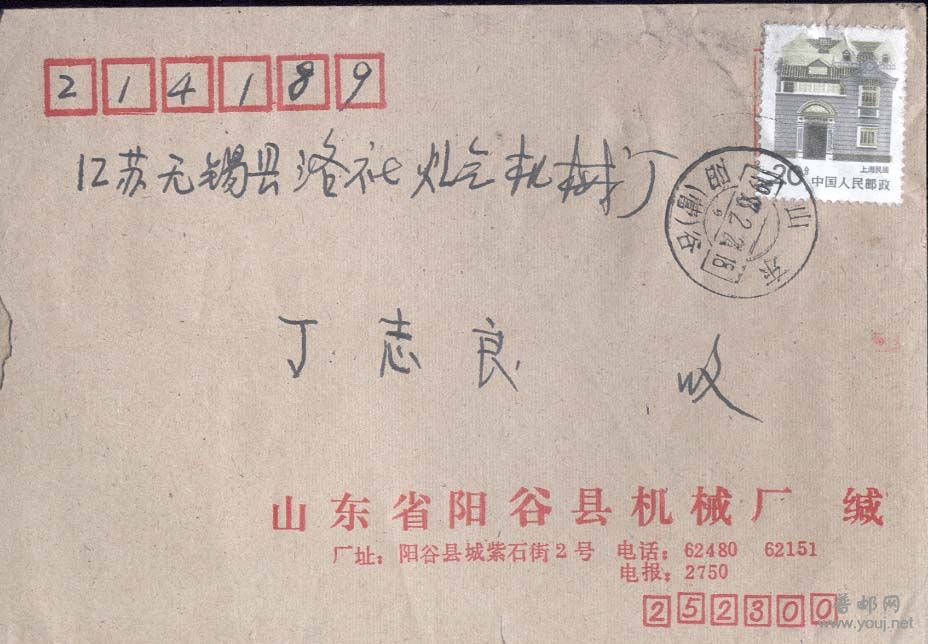 214189
上海民居
20分
中国人民邮政
江苏无锡县洛社灶气机械厂
山东
阳谷
丁志良 收
山东省阳谷县机械厂 缄
厂址：阳谷县城紫石街2号 电话：62480 62151
电报：2750
252300
普邮网
www.youj.net